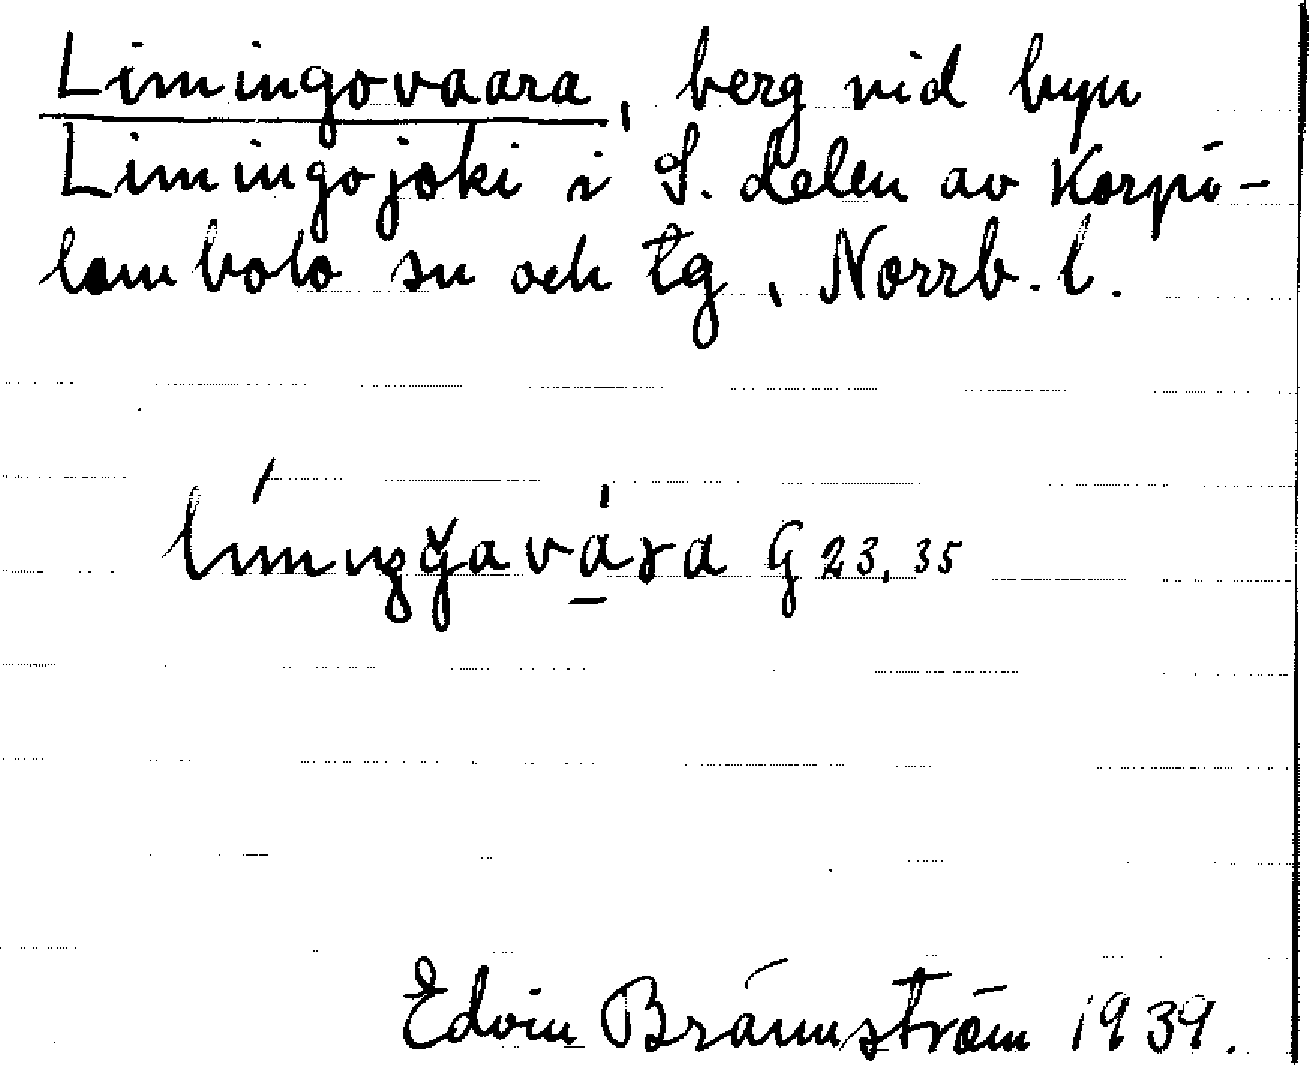 Limingovaara, berg vid byn
Limingojoki i S. delen av Korpi-
lombolo sn och tg, Norrb. l.
G 23, 35
Edvin Brännström 1939.